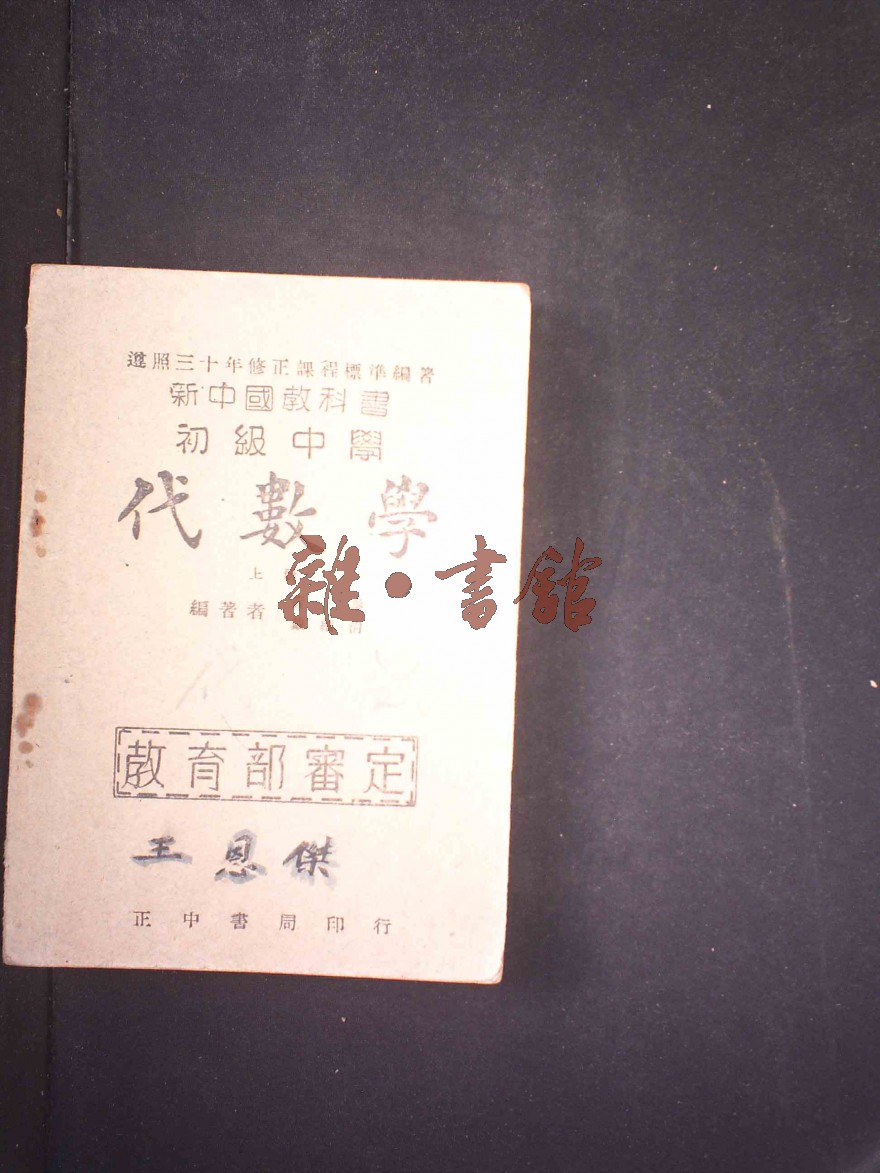 遵照三十年修正課程標準編著
新中國教科書
初級中學
代數學
上
編著者
雜·書館
教育部審定
王恩傑
正中書局印行